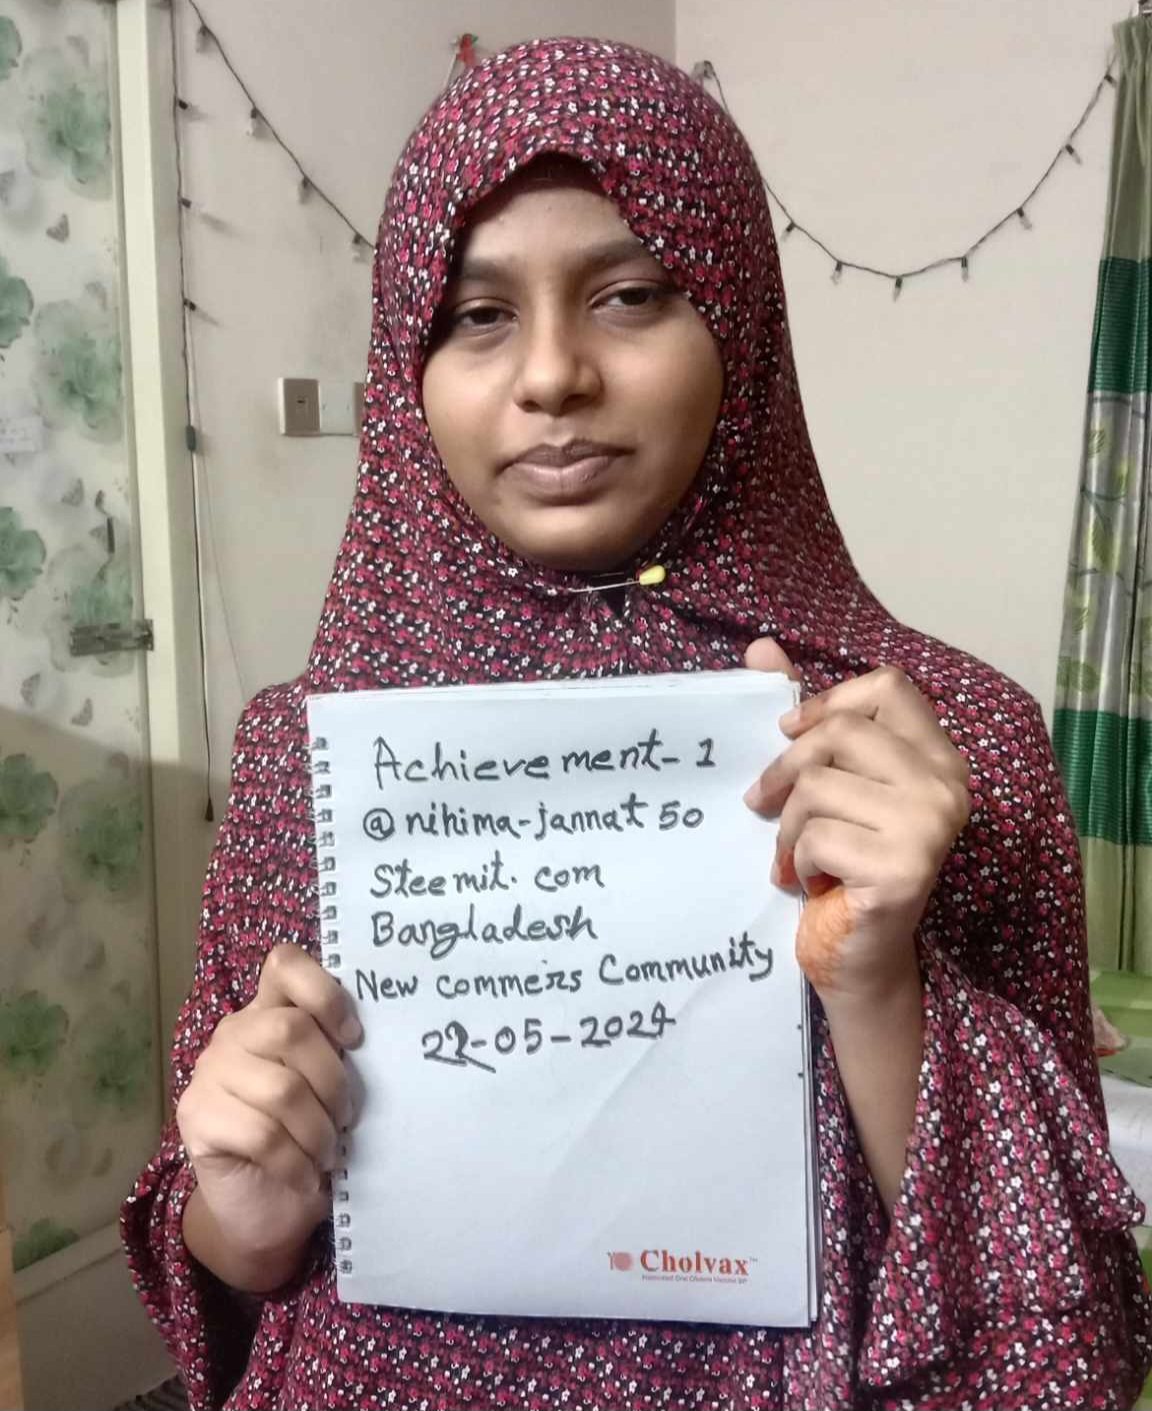 Achievement-1
@nihima-jannat50
Steemit.com
Bangladesh
New commers Community
22-05-2024
Cholvax™